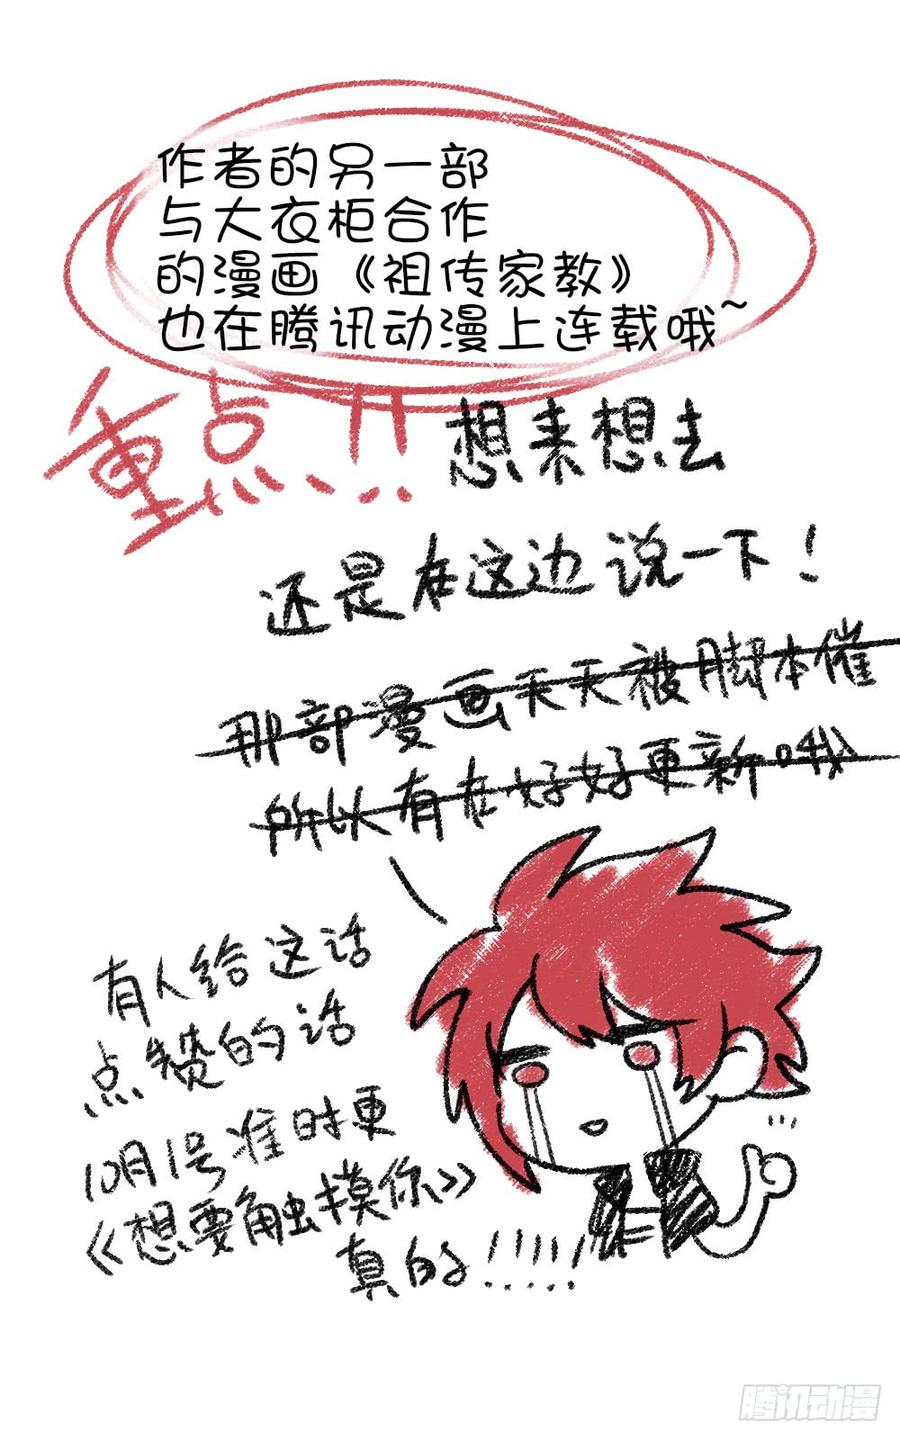 作者的另一部
与大衣柜合作
的漫画《祖传家教》
也在腾讯动漫上连载哦~
重点!!
想来想去
还是在这边说一下!
那部漫画天天被脚本催
所以有在好好更新哦
有人给这话
点赞的话
10月1号准时更
《想要触摸你》
真的!!!!!
腾讯动漫